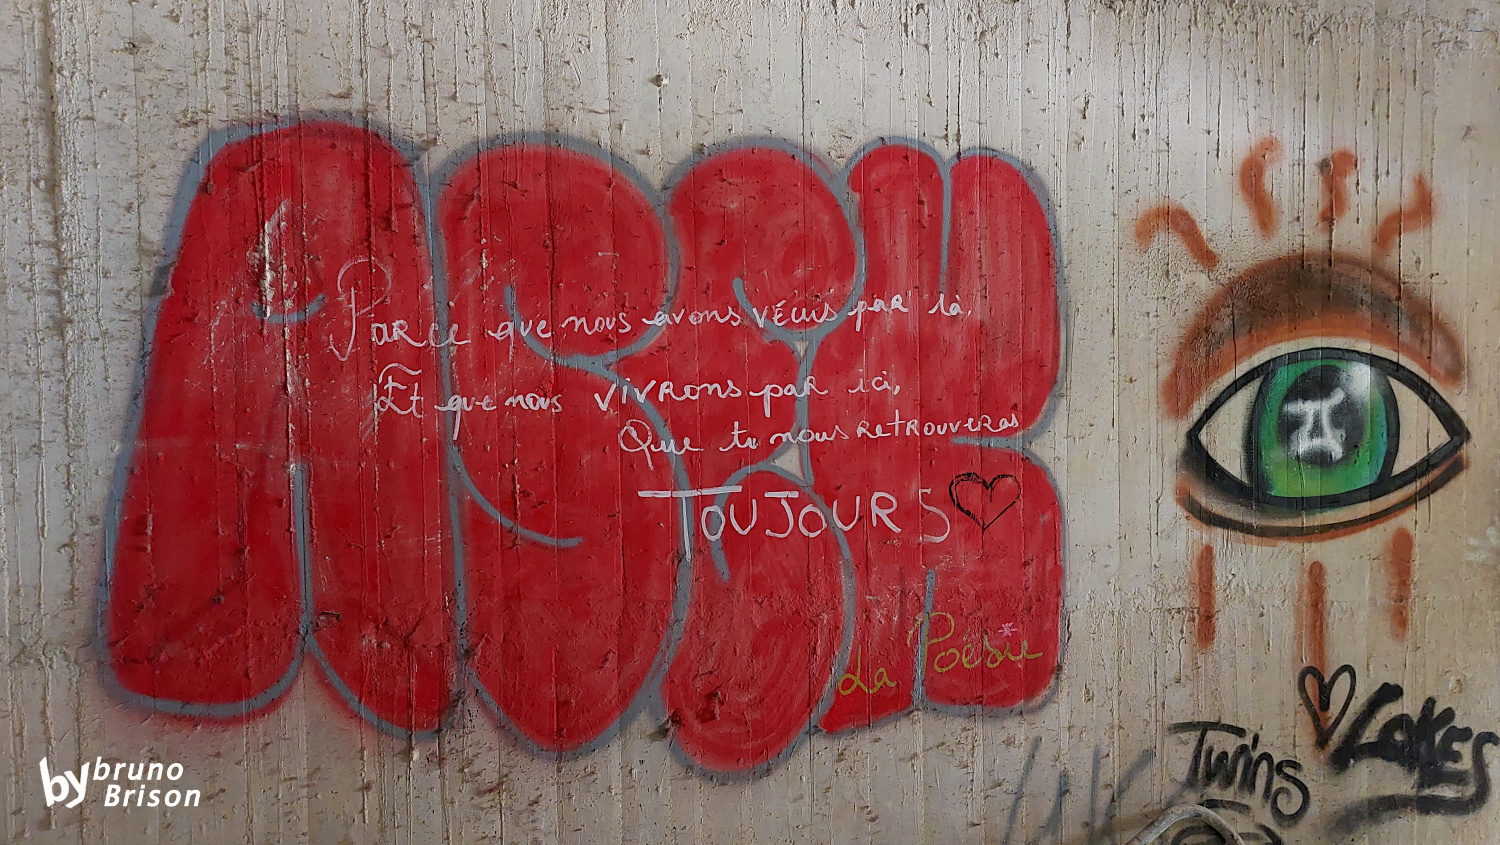 Parce que nous avons vécus par là,
Et que nous vivrons par ici,
Que tu nous retrouveras
TOUJOURS
La Poésie
Twins
by bruno
Brison